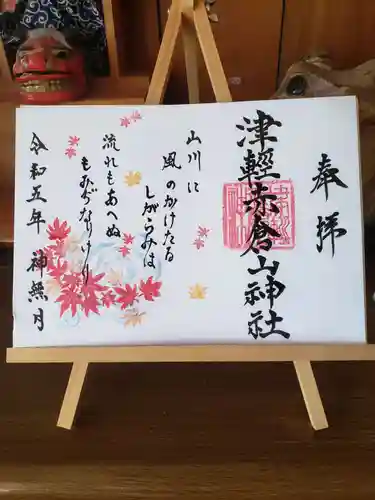 奉拝
津軽赤倉山神社
山川に
風のかけたる
しがらみは
流れもあへぬ
もみぢなりけり
令和五年 神無月